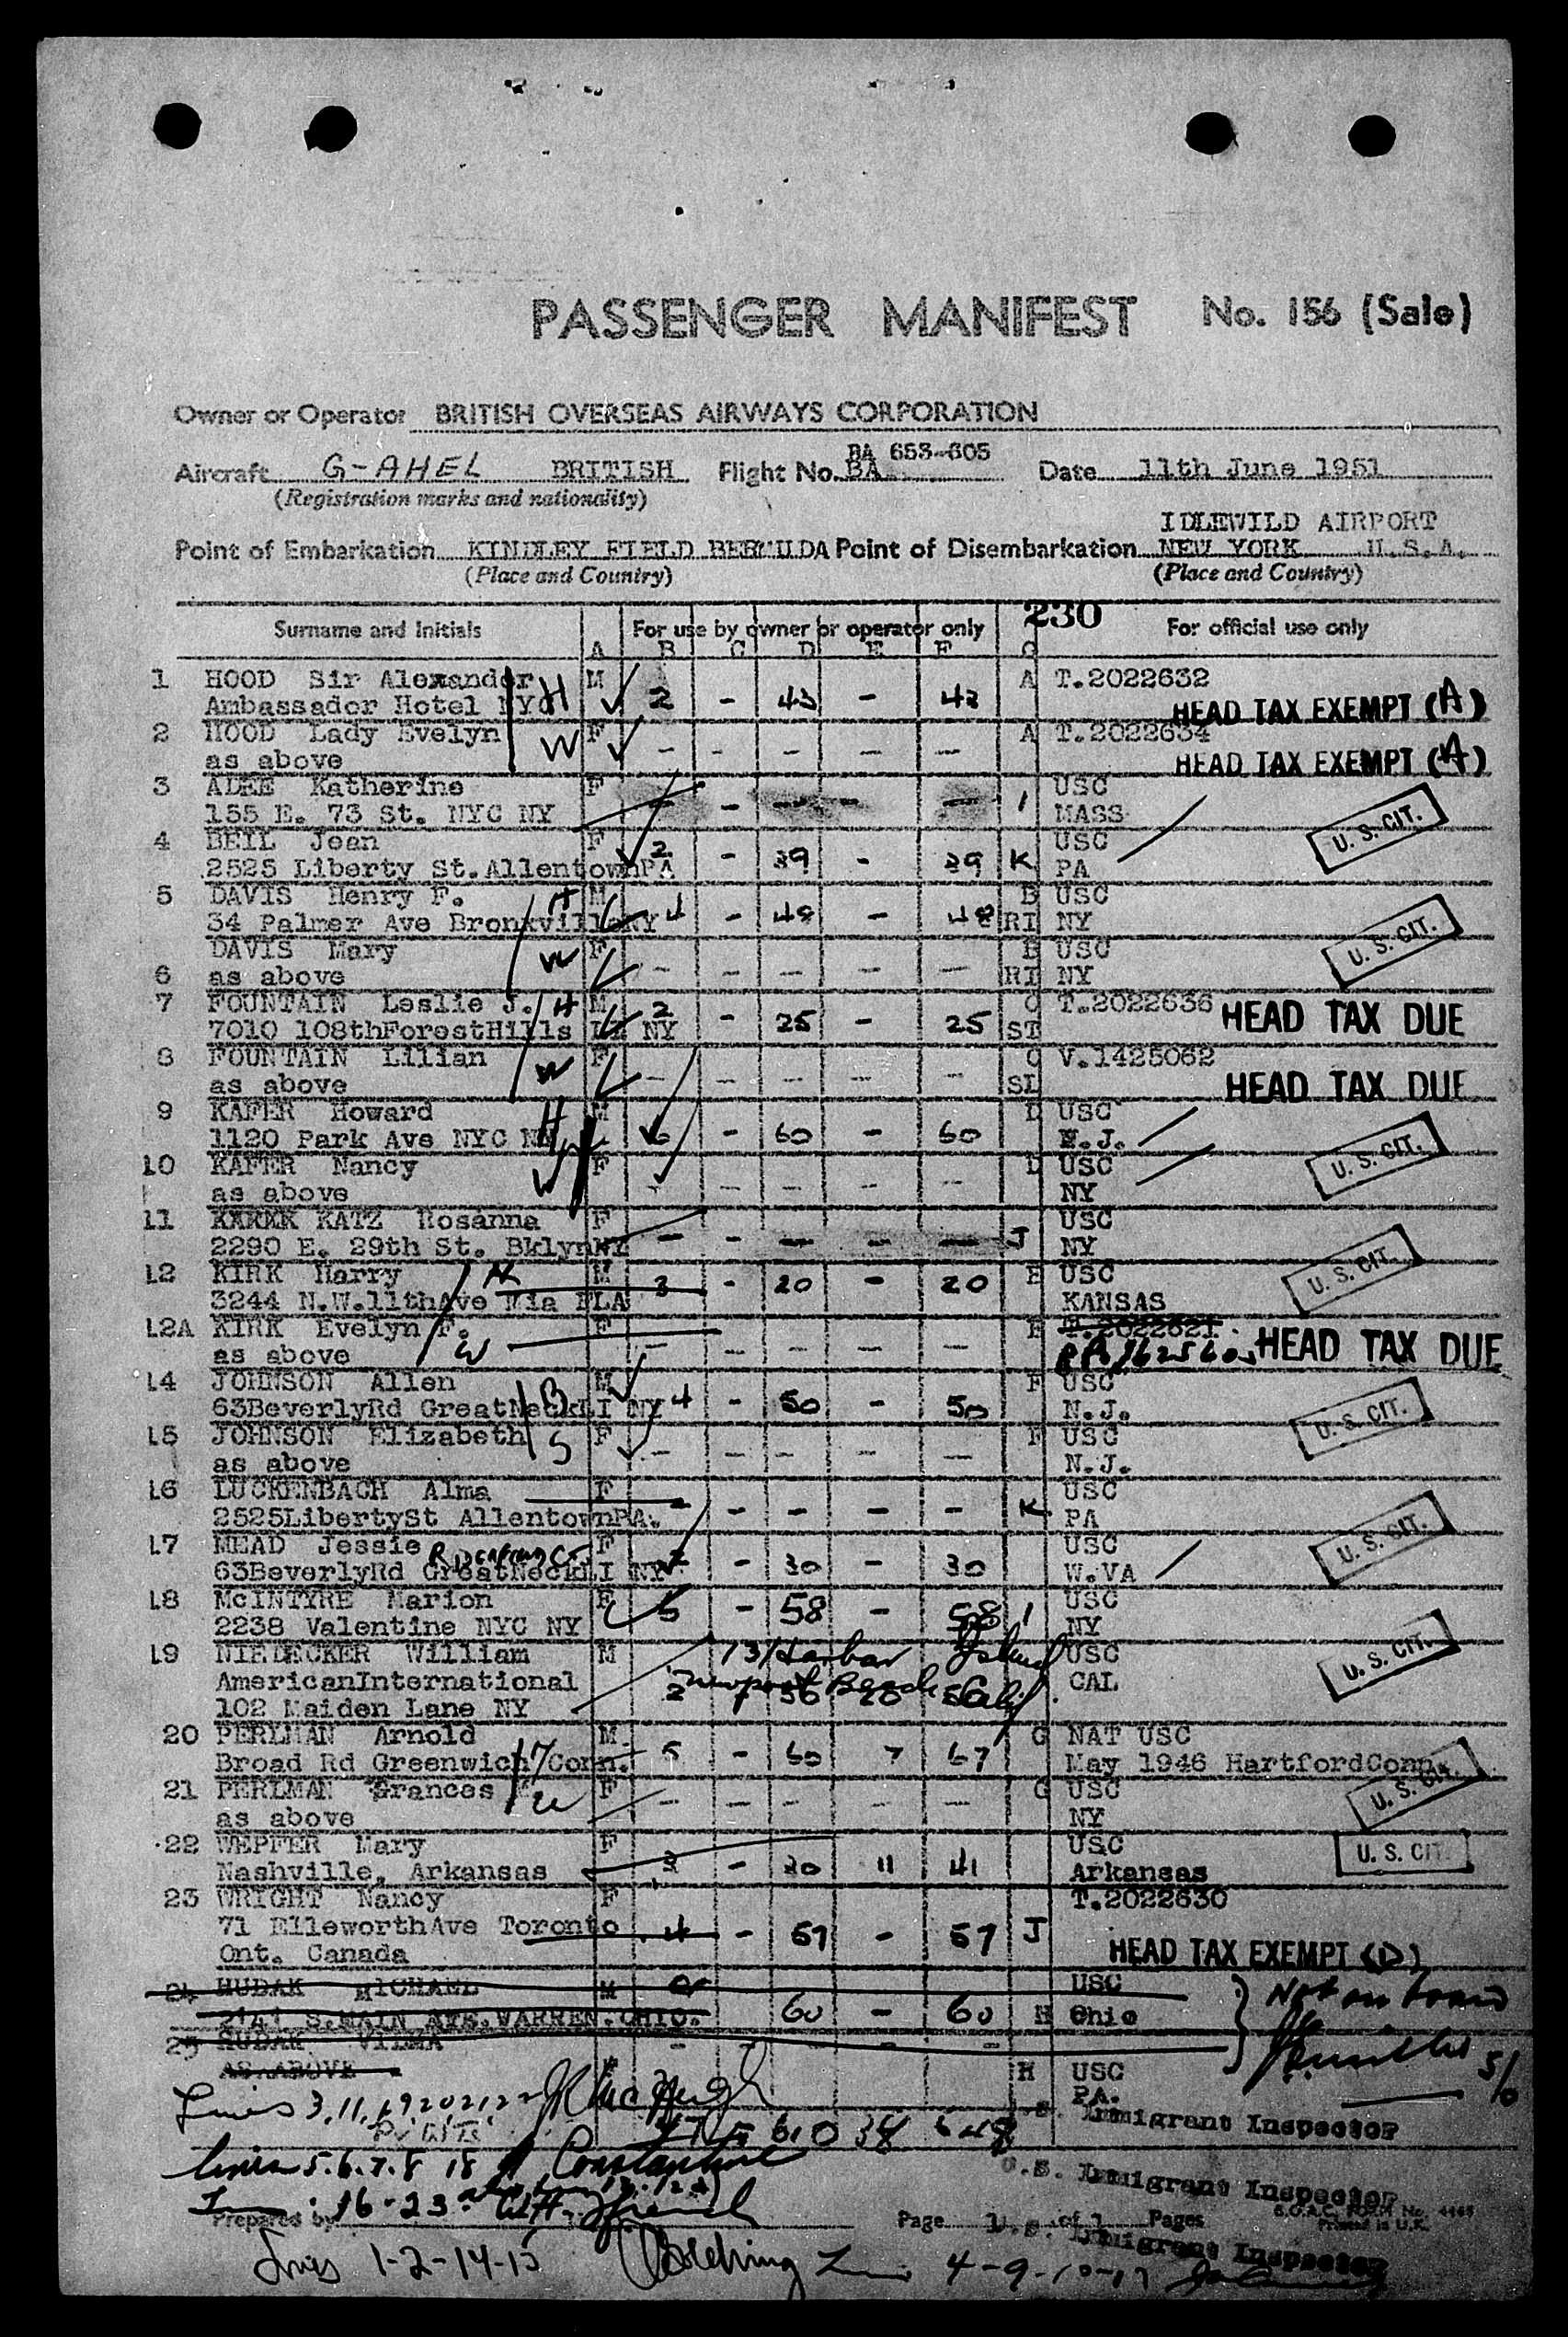 PASSENGER MANIFEST No. 156 (Sale)
Owner or Operator BRITISH OVERSEAS AIRWAYS CORPORATION
BA 653-605
Aircraft G-AHEL BRITISH Flight No. BA Date 11th June 1951
(Registration marks and nationality)
IDLEWILD AIRPORT
Point of Embarkation KINDLEY FIELD BERMUDA Point of Disembarkation NEW YORK U.S.A.
(Place and Country) (Place and Country)
230
Surname and Initials For use by owner or operator only For official use only
A B C D E F G
1 HOOD Sir Alexander M A T.2022632
Ambassador Hotel NYC H 2 - 43 - 43 HEAD TAX EXEMPT (A)
2 HOOD Lady Evelyn W F A T.2022634
as above - - - - - HEAD TAX EXEMPT (A)
3 ALEE Katherine F USC
155 E. 73 St. NYC NY - - - - - 1 MASS U. S. CIT.
4 BEIL Jean F USC
2525 Liberty St.AllentownPA 2 - 39 - 39 K PA
5 DAVIS Henry F. H M B USC
34 Palmer Ave BronxvilleNY 4 - 48 - 48 RI NY U. S. CIT.
DAVIS Mary W F B USC
6 as above - - - - - RI NY
7 FOUNTAIN Leslie J. H M 2 C T.2022636 HEAD TAX DUE
7010 108thForestHills LI NY - 25 - 25 ST
8 FOUNTAIN Lilian W F C V.1425062
as above - - - - - SL HEAD TAX DUE
9 KAFER Howard H M D USC
1120 Park Ave NYC NY 6 - 60 - 60 N.J. U. S. CIT.
10 KAFER Nancy W F D USC
as above - - - - - NY
11 KATZ Rosanna F USC
2290 E. 29th St. BklynNY - - - - - J NY U. S. CIT.
12 KIRK Harry H M 3 - 20 - 20 E USC
3244 N.W.11thAve Mia FLA KANSAS
12A KIRK Evelyn F. W F E T.2022621
as above - - - - - HEAD TAX DUE
14 JOHNSON Allen B M F USC
63BeverlyRd GreatNeckLI NY 4 - 50 - 50 N.J. U. S. CIT.
15 JOHNSON Elizabeth S F F USC
as above - - - - - N.J.
16 LUCKENBACH Alma F USC
2525LibertySt AllentownPA. - - - - - K PA U. S. CIT.
17 MEAD Jessie F USC
63BeverlyRd GreatNeckLI NY - 30 - 30 W.VA
18 McINTYRE Marion F USC
2238 Valentine NYC NY 5 - 58 - 58 1 NY
19 NIEDECKER William M 131 Harbor Island USC U. S. CIT.
AmericanInternational 2 Newport Beach Calif. CAL
102 Maiden Lane NY
20 PERLMAN Arnold M G NAT USC
Broad Rd Greenwich Conn. 5 - 60 7 67 May 1946 HartfordConn.
21 PERLMAN Frances F G USC U. S. CIT.
as above - - - - - NY
22 WEPFER Mary F USC U. S. CIT.
Nashville, Arkansas 3 - 30 11 41 Arkansas
23 WRIGHT Nancy F T.2022630
71 ElleworthAve Toronto 4 - 57 - 57 J
Ont. Canada HEAD TAX EXEMPT (D)
24 HUDAK MICHAEL M USC Not on board
S.MAIN AVE.WARREN.OHIO. 60 - 60 H Ohio
25 HUDAK VILMA
AS ABOVE F H USC
PA.
Lines 3,11,19202122
Immigrant Inspector
610 38 648
Lines 5.6.7.8 18 Constantine
U.S. Immigrant Inspector
16-23
Prepared by Page 1 of 1 Pages
B.O.A.C. FORM No. 4465
Printed in U.K.
U.S. Immigrant Inspector
Lines 1-2-14-15 4-9-10-17